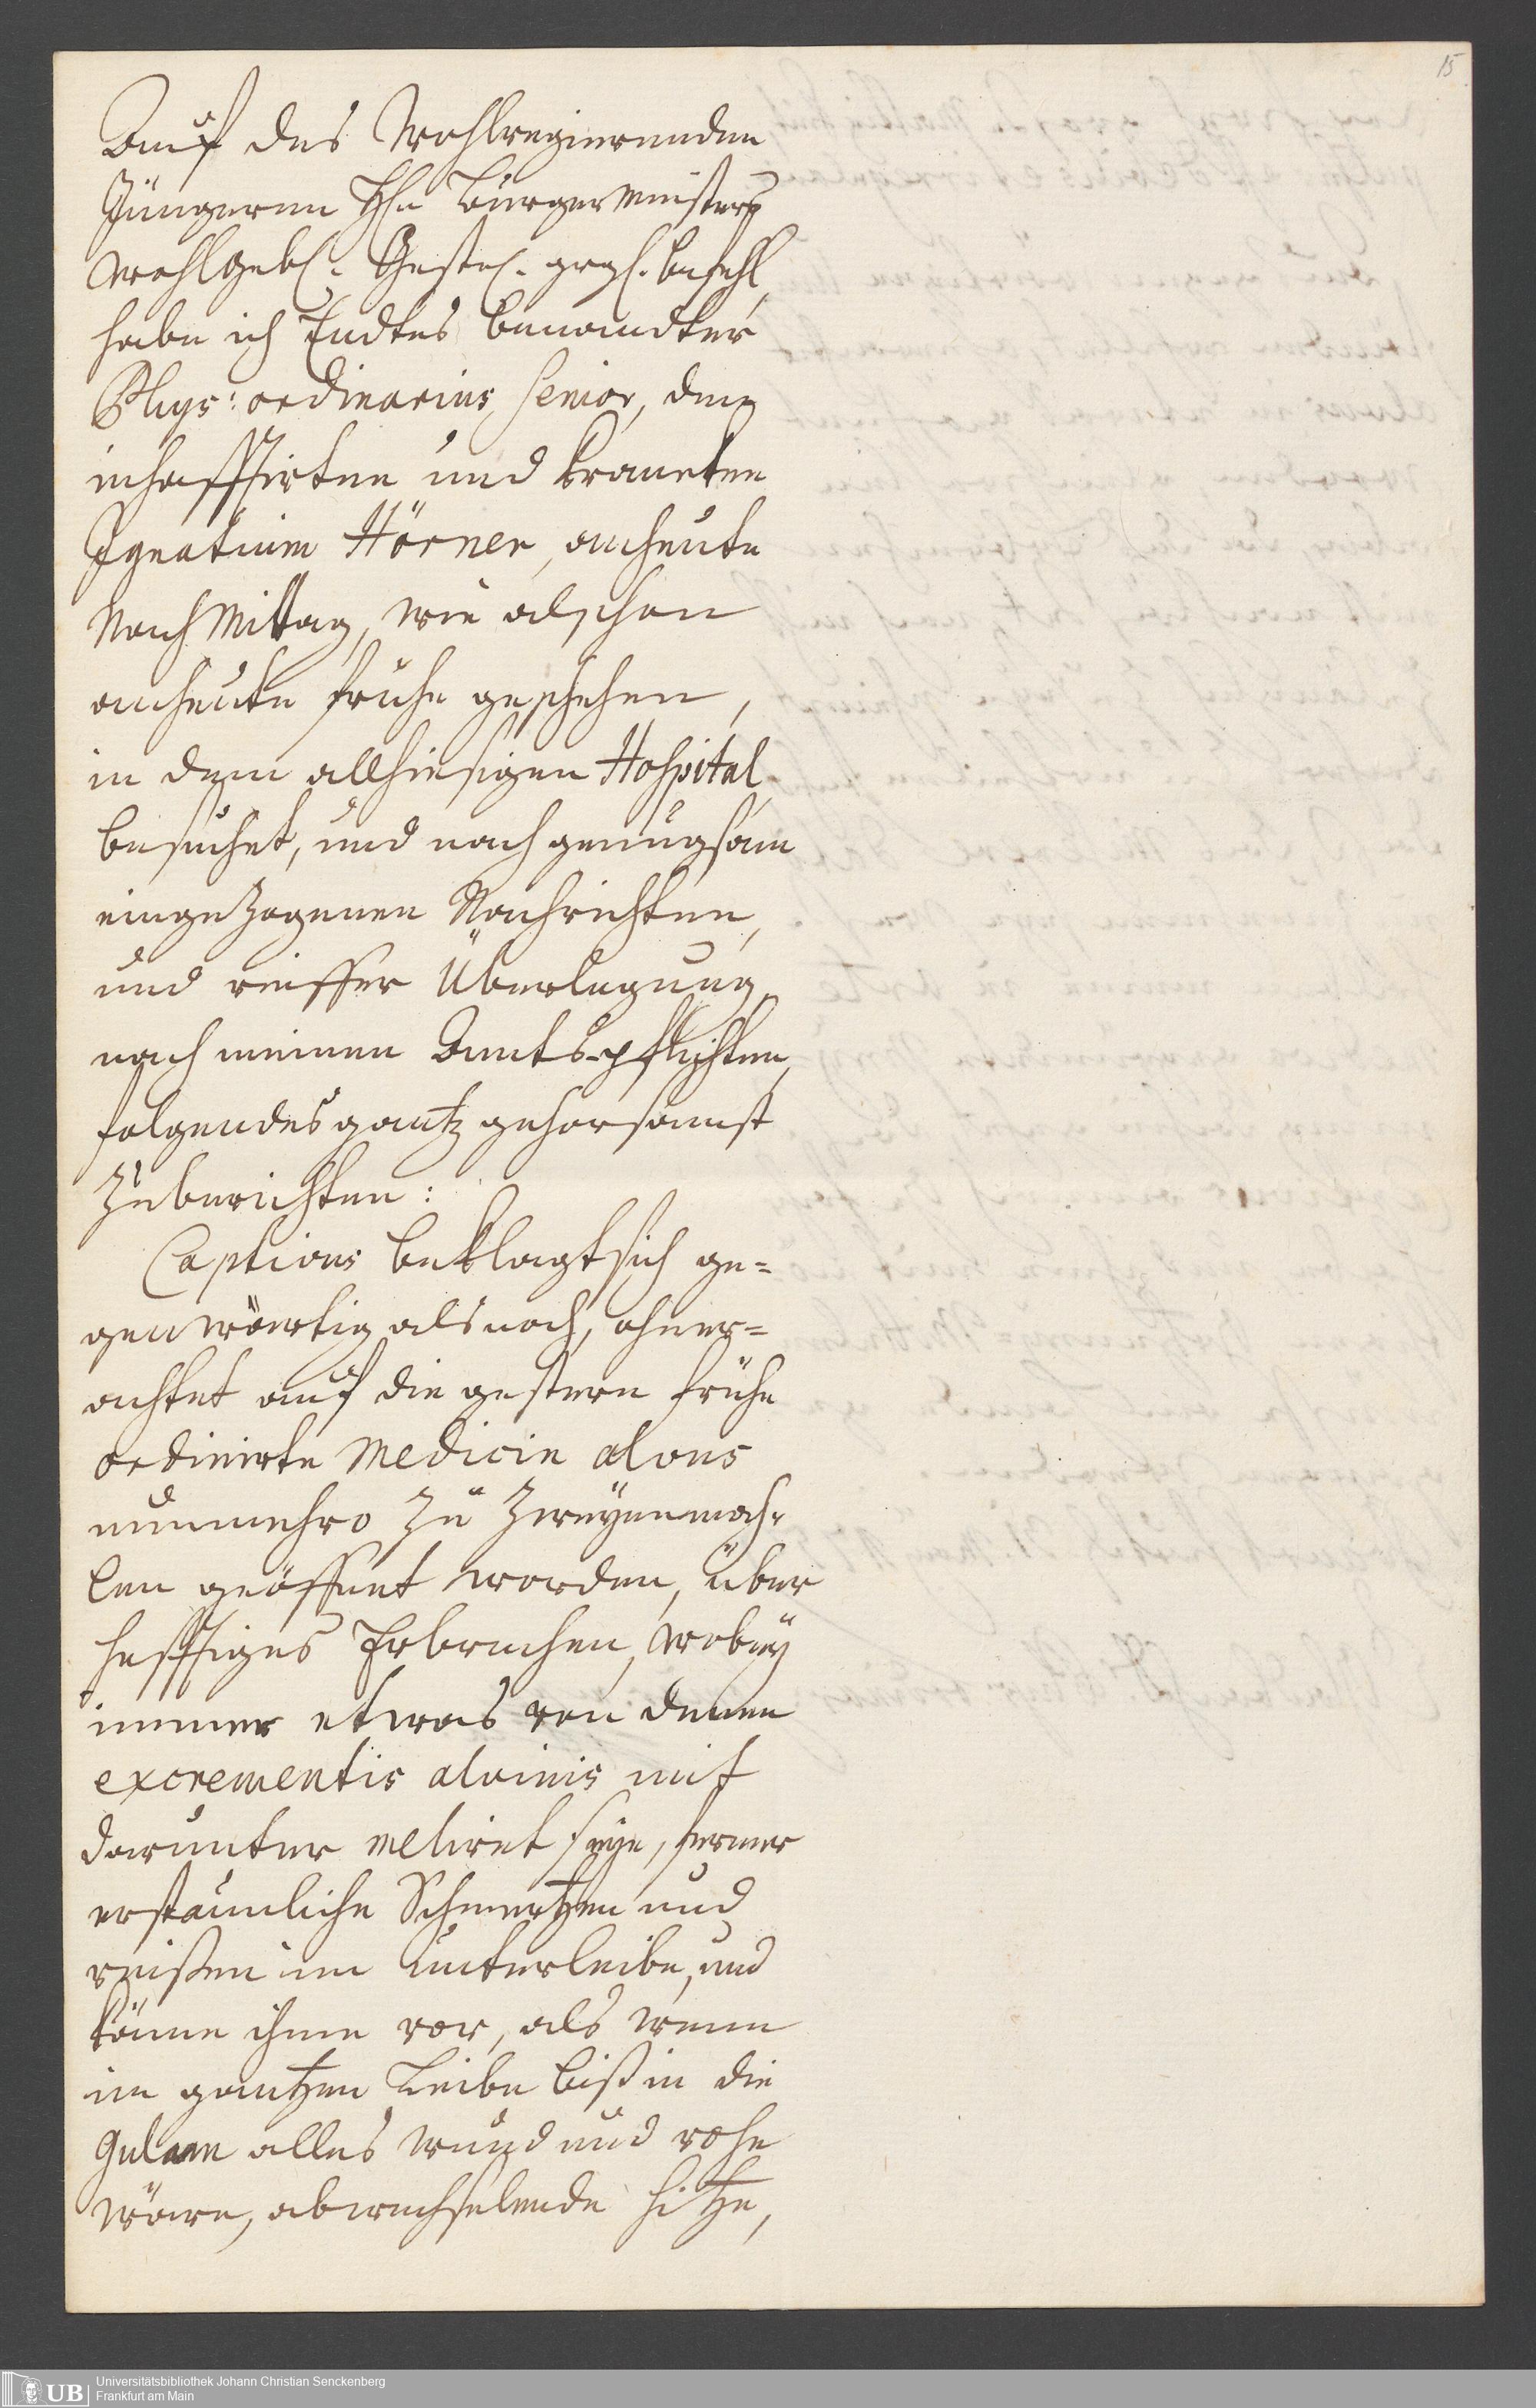 15
Auf des Wohlregierenden
Jüngeren Hn Bürgermeisters
WohlGeb. Gestr. grgl. befehl
habe ich Endtes benandter
Phys: ordinarius, Senior, den
inhafftirten und krancken
Ignatium Hörner, anheute
Nach Mittag, wie alschon
anheute frühe geschehen,
in dem allhiesigen Hospital
besuchet, und nach genugsam
eingezogenen Nachrichten,
und reiffer Überlegung,
nach meinen Ambts-pflichten,
folgendes gantz gehorsamst
zu berichten:
Captivus beklagt sich ge=
genwärtig alsnoch, ohner=
achtet auf die gestern frühe
ordinirte Medicin alvus
nunmehro zu Zweyenmah-
len geöffnet worden, über
hefftiges Erbrechen, wobey
immer etwas von denen
excrementis alvinis mit
darunter meliret seye, ferner
erstaunliche Schmertzen und
reißen im Unterleibe, und
käme ihme vor, als wenn
im gantzen Leibe biß in die
Gulam alles wund und rohe
wäre, abwechselende Hitze,
UB
Universitätsbibliothek Johann Christian Senckenberg
Frankfurt am Main